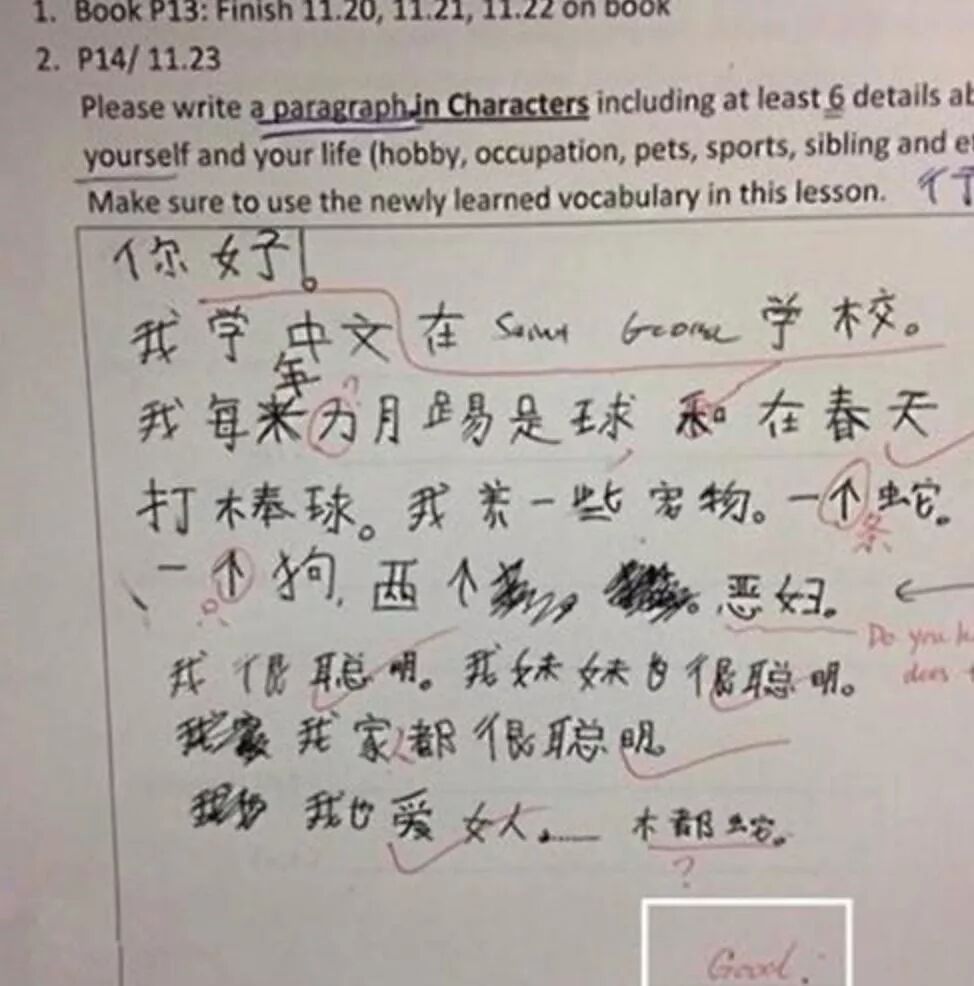 1. Book P13: Finish 11.20, 11.21, 11.22 on book
2. P14/ 11.23
Please write a paragraph in Characters including at least 6 details ab
yourself and your life (hobby, occupation, pets, sports, sibling and e
Make sure to use the newly learned vocabulary in this lesson.
你 好!。
我 学 中 文 在 学 校。
年
我 每 月 踢 是 球 和 在 春 天
打 棒 球。 我 养 一 些 宠 物。 一 个 蛇。
条
一 个 狗, 两 个 恶 妇。
只
Do you
does
我 很 聪 明。 我 妹 妹 也 很 聪 明。
我 家 人 都 很 聪 明
我 也 爱 女 人 木 都 蛇。
?
Good.